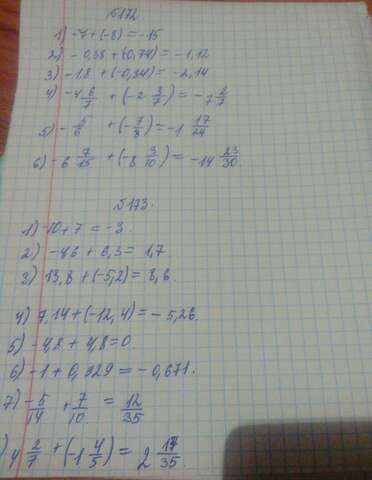 №172
1) -7+(-8) = -15
2) -0,38 + (-0,74) = -1,12
3) -1,8 + (-0,34) = -2,14
4) -4 6/7 + (-2 3/7) = -7 2/7
5) -5/6 + (-7/8) = -1 17/24
6) -6 7/15 + (-8 3/10) = -14 23/30.
№173.
1) -10+7 = -3.
2) -4,6 + 6,3 = 1,7
3) 13,8 + (-5,2) = 8,6.
4) 7,14 + (-12,4) = -5,26.
5) -4,8 + 4,8 = 0.
6) -1 + 0,329 = -0,671.
7) -5/14 + 7/10 = 12/35
) 4 2/7 + (-1 4/5) = 2 17/35.